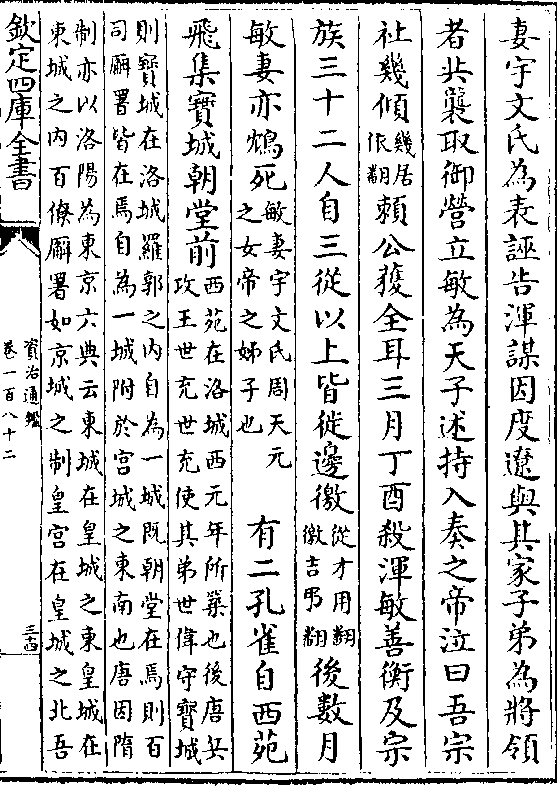 妻宇文氏為表誣告渾謀因度遼與其家子弟為將領
者共襲取御營立敏為天子述持入奏之帝泣曰吾宗
社幾傾幾居依翻賴公獲全耳三月丁酉殺渾敏善衡及宗
族三十二人自三從以上皆徙邊徼從才用翻徼吉弔翻後數月
敏妻亦鴆死敏妻宇文氏周天元之女帝之姊子也 有二孔雀自西苑
飛集寶城朝堂前西苑在洛城西元年所築也後唐兵攻王世充世充使其弟世偉守寶城
則寶城在洛城羅郭之内自為一城既朝堂在焉則百
司廨署皆在焉自為一城附於宫城之東南也唐因隋
制亦以洛陽為東京六典云東城在皇城之東皇城在
東城之内百僚廨署如京城之制皇宫在皇城之北吾
欽定四庫全書
資治通鑑
卷一百八十二
三十四